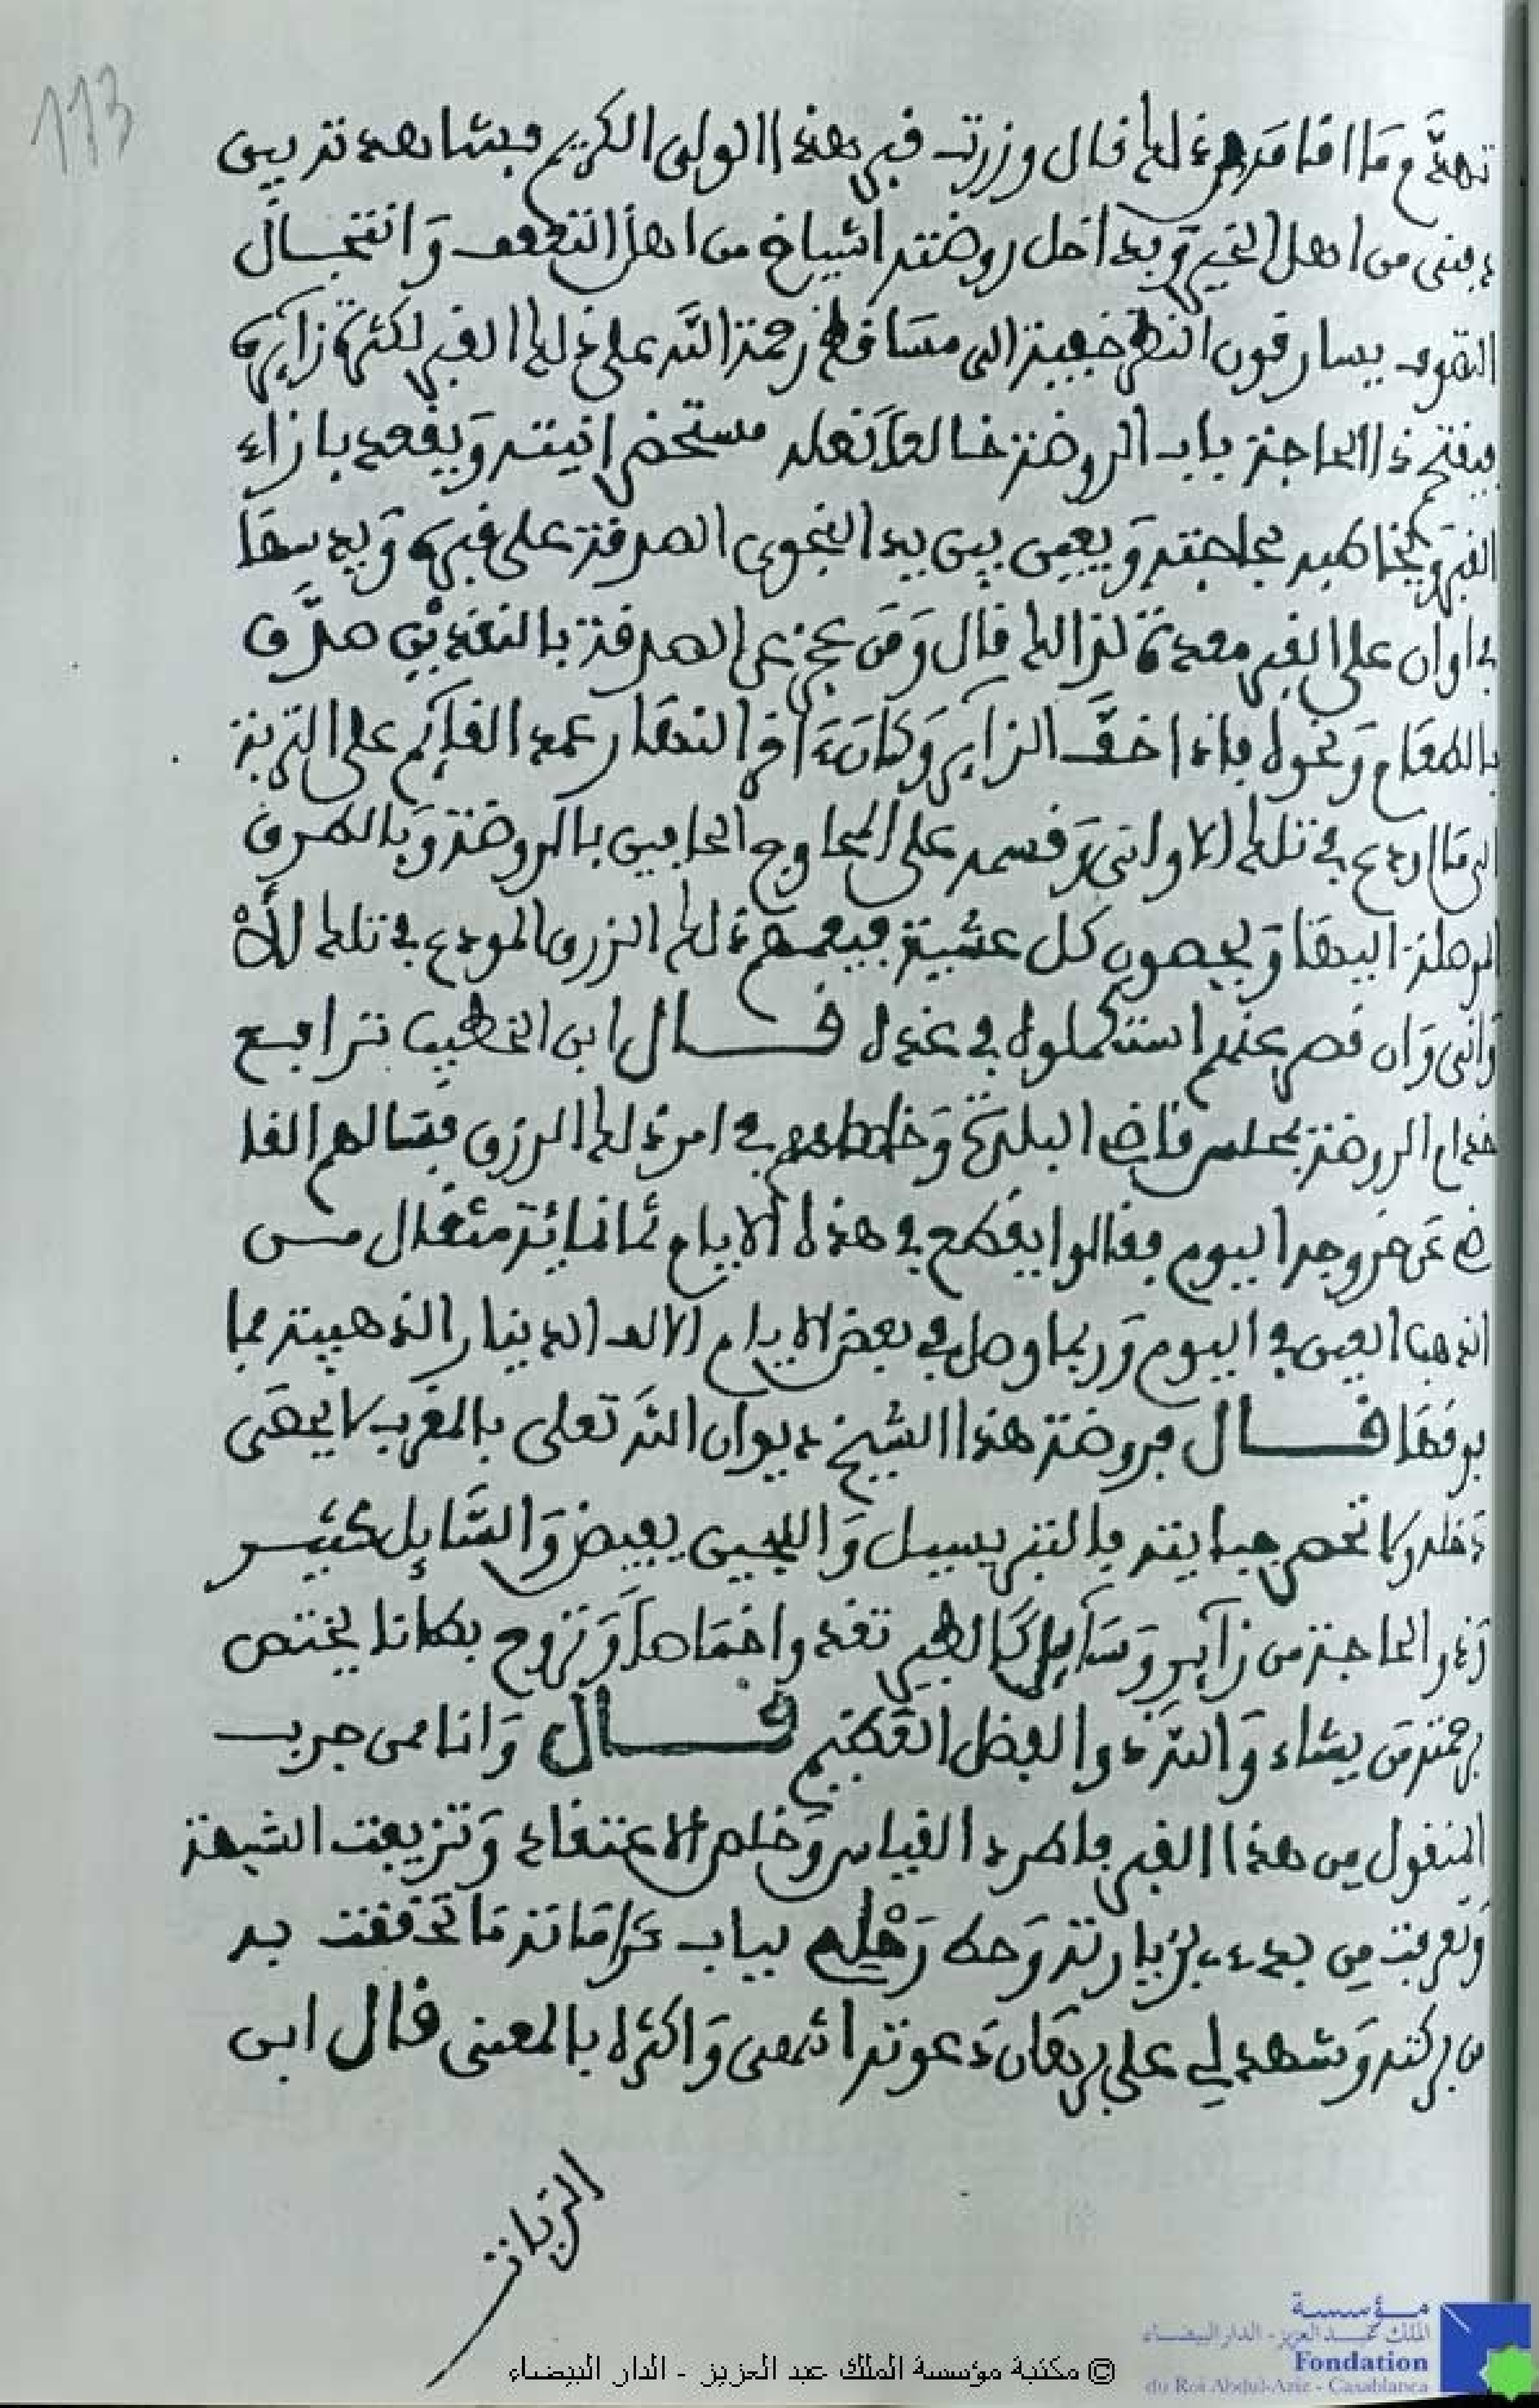 113
تهدم وما اقامه ذلك قال وزرت قبر هذا الولي الكريم فشاهدت بين
دفني من اهل الخير وبداخل روضته اشياخ من اهل التعفف وانتحال
التصوف يسارقون النظر خفية الى مساقط رحمة الله على ذلك القبر لكثرة زايره
فيفتح ذا الحاجة باب الروضة خالعا نعله مستحضرا نيته ويقعد بازاء
القبر ويخاطبه بحاجته ويعين بين يدا النجوى الصدقة على قبره ويدسها
في اوان على القبر معدة لذالك قال ومن عجز عن الصدقة بالنقدين صدق
بالطعام ونحوه فاذا خف الزاير وكان اخر النهار عمد القايم على التربة
الى ما اودع في تلك الاواني وقسمه على المحاويج الحافين بالروضة وبالطرق
الموصلة اليها ويحصون كل عشية فيعمهم ذلك الرزق المودع في تلك الا
واني وان قصر عنهم استكملوه في غده قال ابن الخطيب ترافع
خدام الروضة بمجلس قاضي البلدة وخاطبهم في امر ذلك الرزق فسالهم القا
ضي عن خروجه اليوم فقالوا يقطع في هذه الايام ثمانمائة مثقال من
الذهب العين في اليوم وربما وصل في بعض الايام الالف الدينار الذهبية فما
فوقها قال فروضة هذا الشيخ ديوان الله تعلى بالمغرب لا يحصى
دخله ولا تحصر جبايته فالتبر يسيل واللجين يفيض والسايل كثير
وذو الحاجة من زاير وسايل كالطير تغدوا خماصا وتروح بطانا يختص
برحمته من يشاء والله ذوا الفضل العظيم قال وانا ممن جرب
المنقول من هذا القبر فاطرد القياس وخلص الاعتقاد وتزيفت الشبهة
وتعرفت من بدء بزيارته وحط رحله بباب كراماته ما تحققت به
من بركته وشهد لي على برهان دعوته انتهى واكثره بالمعنى قال ابن
الزيات
© مكتبة مؤسسة الملك عبد العزيز - الدار البيضاء
مؤسسة
الملك عبد العزيز - الدار البيضاء
Fondation
du Roi Abdul-Aziz - Casablanca